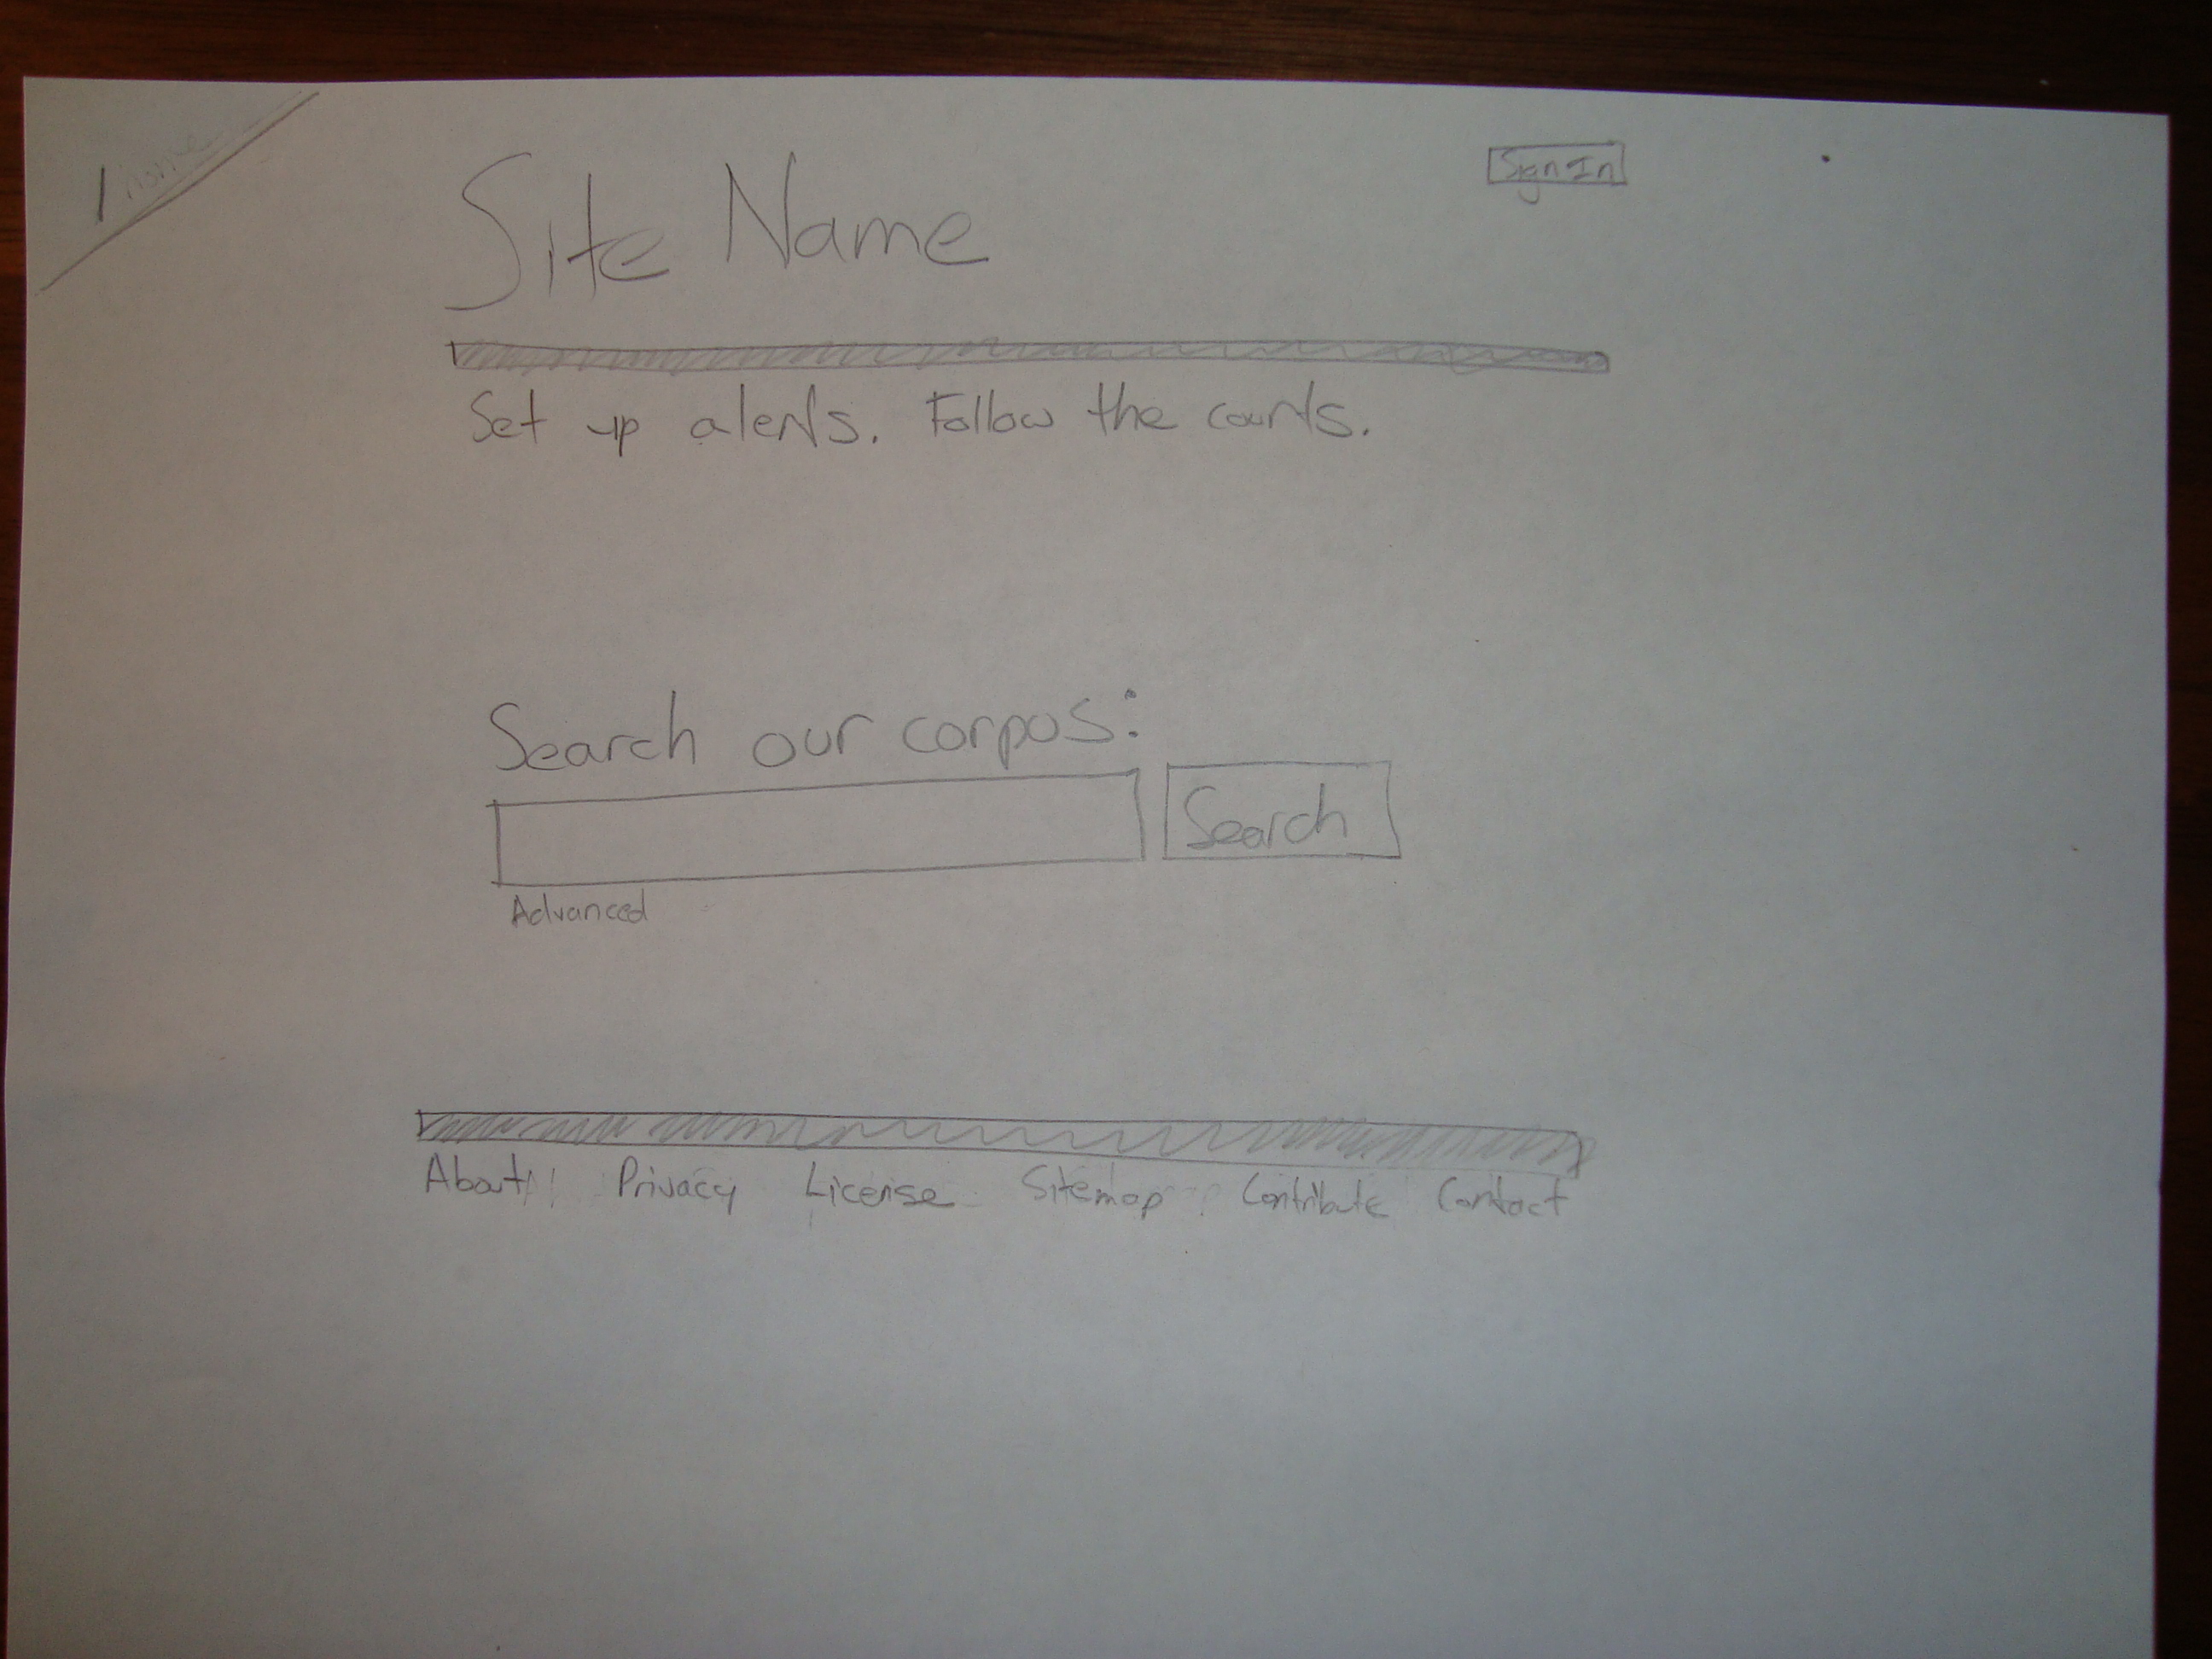 1 home
Sign In
Site Name
Set up alerts. Follow the courts.
Search our corpus:
Search
Advanced
About Privacy License Sitemap Contribute Contact